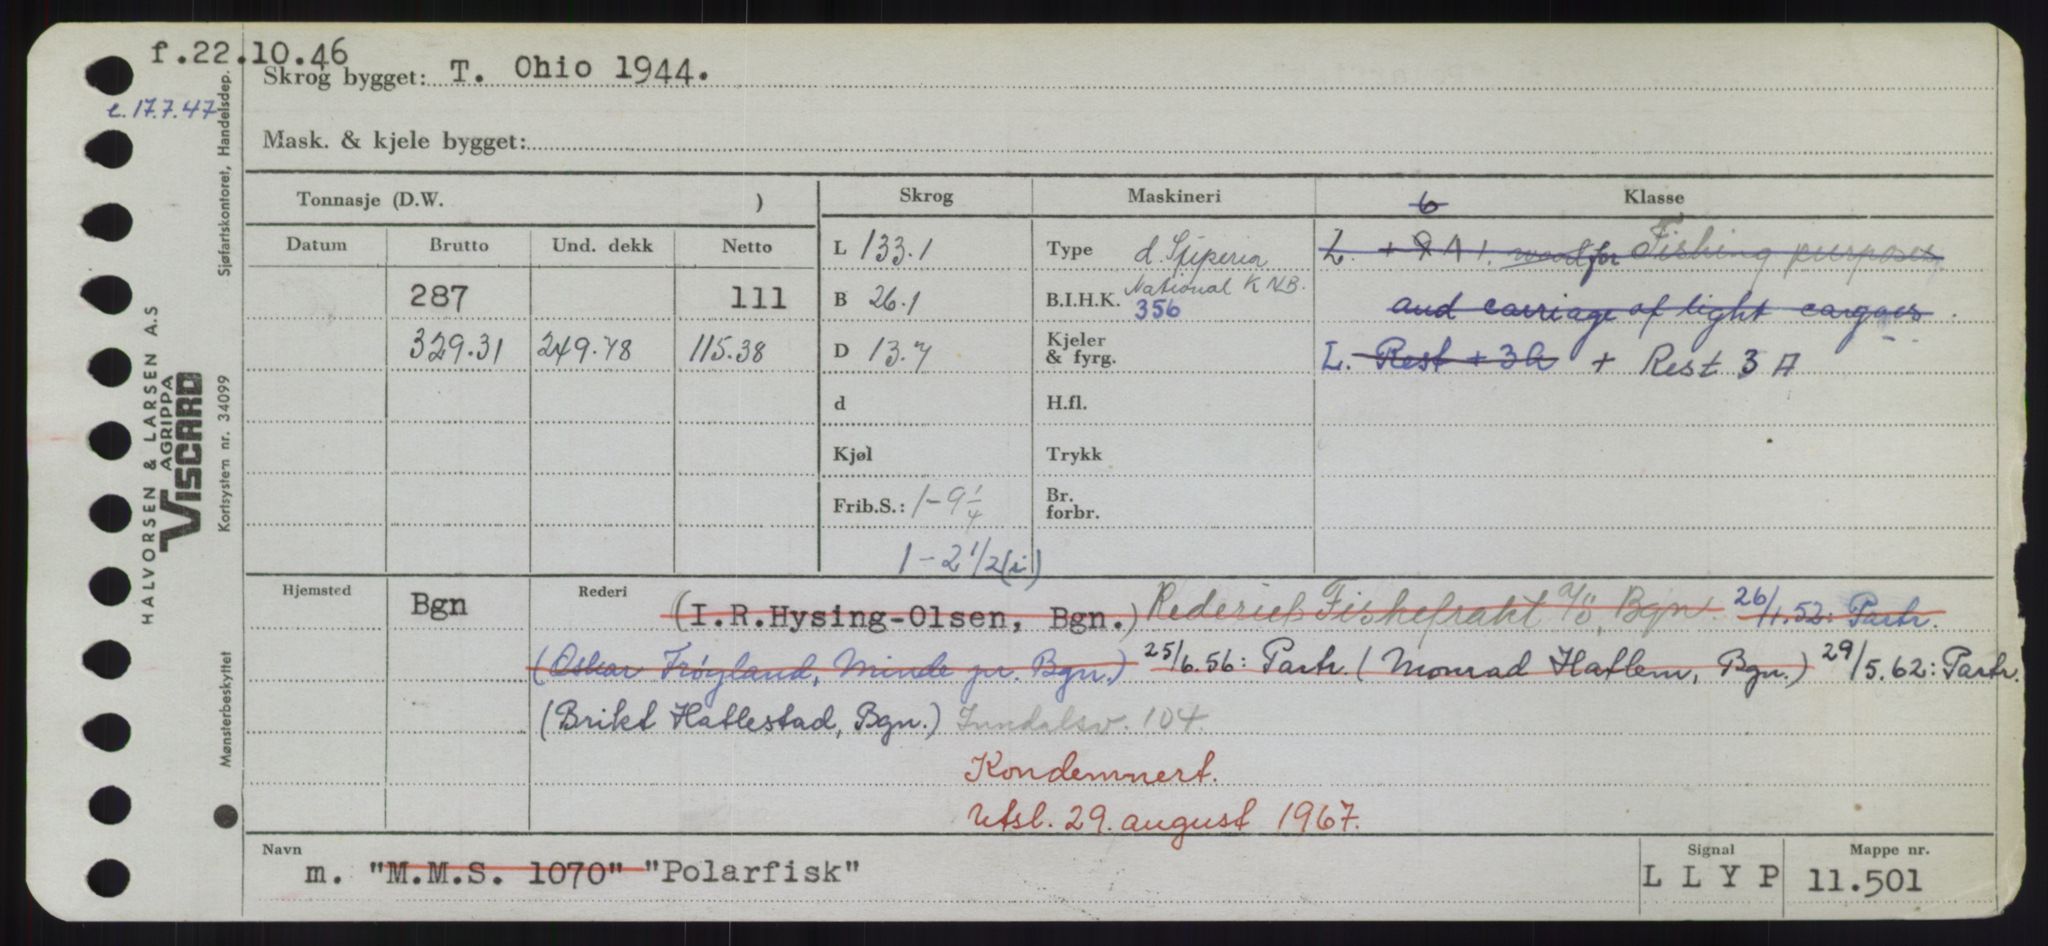 f.22.10.46
Skrog bygget: T. Ohio 1944.
e. 17.7.47
Mask. & kjele bygget:
Tonnasje (D.W. ) Skrog Maskineri 6 Klasse
Datum Brutto Und. dekk Netto L 133.1 Type d. L. + A 1. for Fishing purposes
287 111 B 26.1 B.I.H.K. National K NB. 356 and carriage of light cargoes.
329.31 249.78 115.38 D 13.7 Kjeler & fyrg. L. Rest + 3A + Rest 3 A
d H.fl.
Kjøl Trykk
Frib.S.: 1-9 1/4 Br. forbr.
1-2 1/2 (i)
Hjemsted Bgn Rederi (I.R.Hysing-Olsen, Bgn.) Fiskefrakt A/S, Bgn. 26/1.52: Partr.
(Oskar Frøyland, Minde pr. Bgn.) 25/6.56: Partr. (Monrad Hatlem, Bgn.) 29/5.62: Partr.
(Brikt Hatlestad, Bgn.) 104.
Kondemnert.
Utsl. 29. august 1967.
Navn m. "M.M.S. 1070" "Polarfisk" Signal L L Y P Mappe nr. 11.501
HALVORSEN & LARSEN A.S
AGRIPPA
VISCARD
Sjøfartskontoret, Handelsdep.
Kortsystem nr. 34099
Mønsterbeskyttet